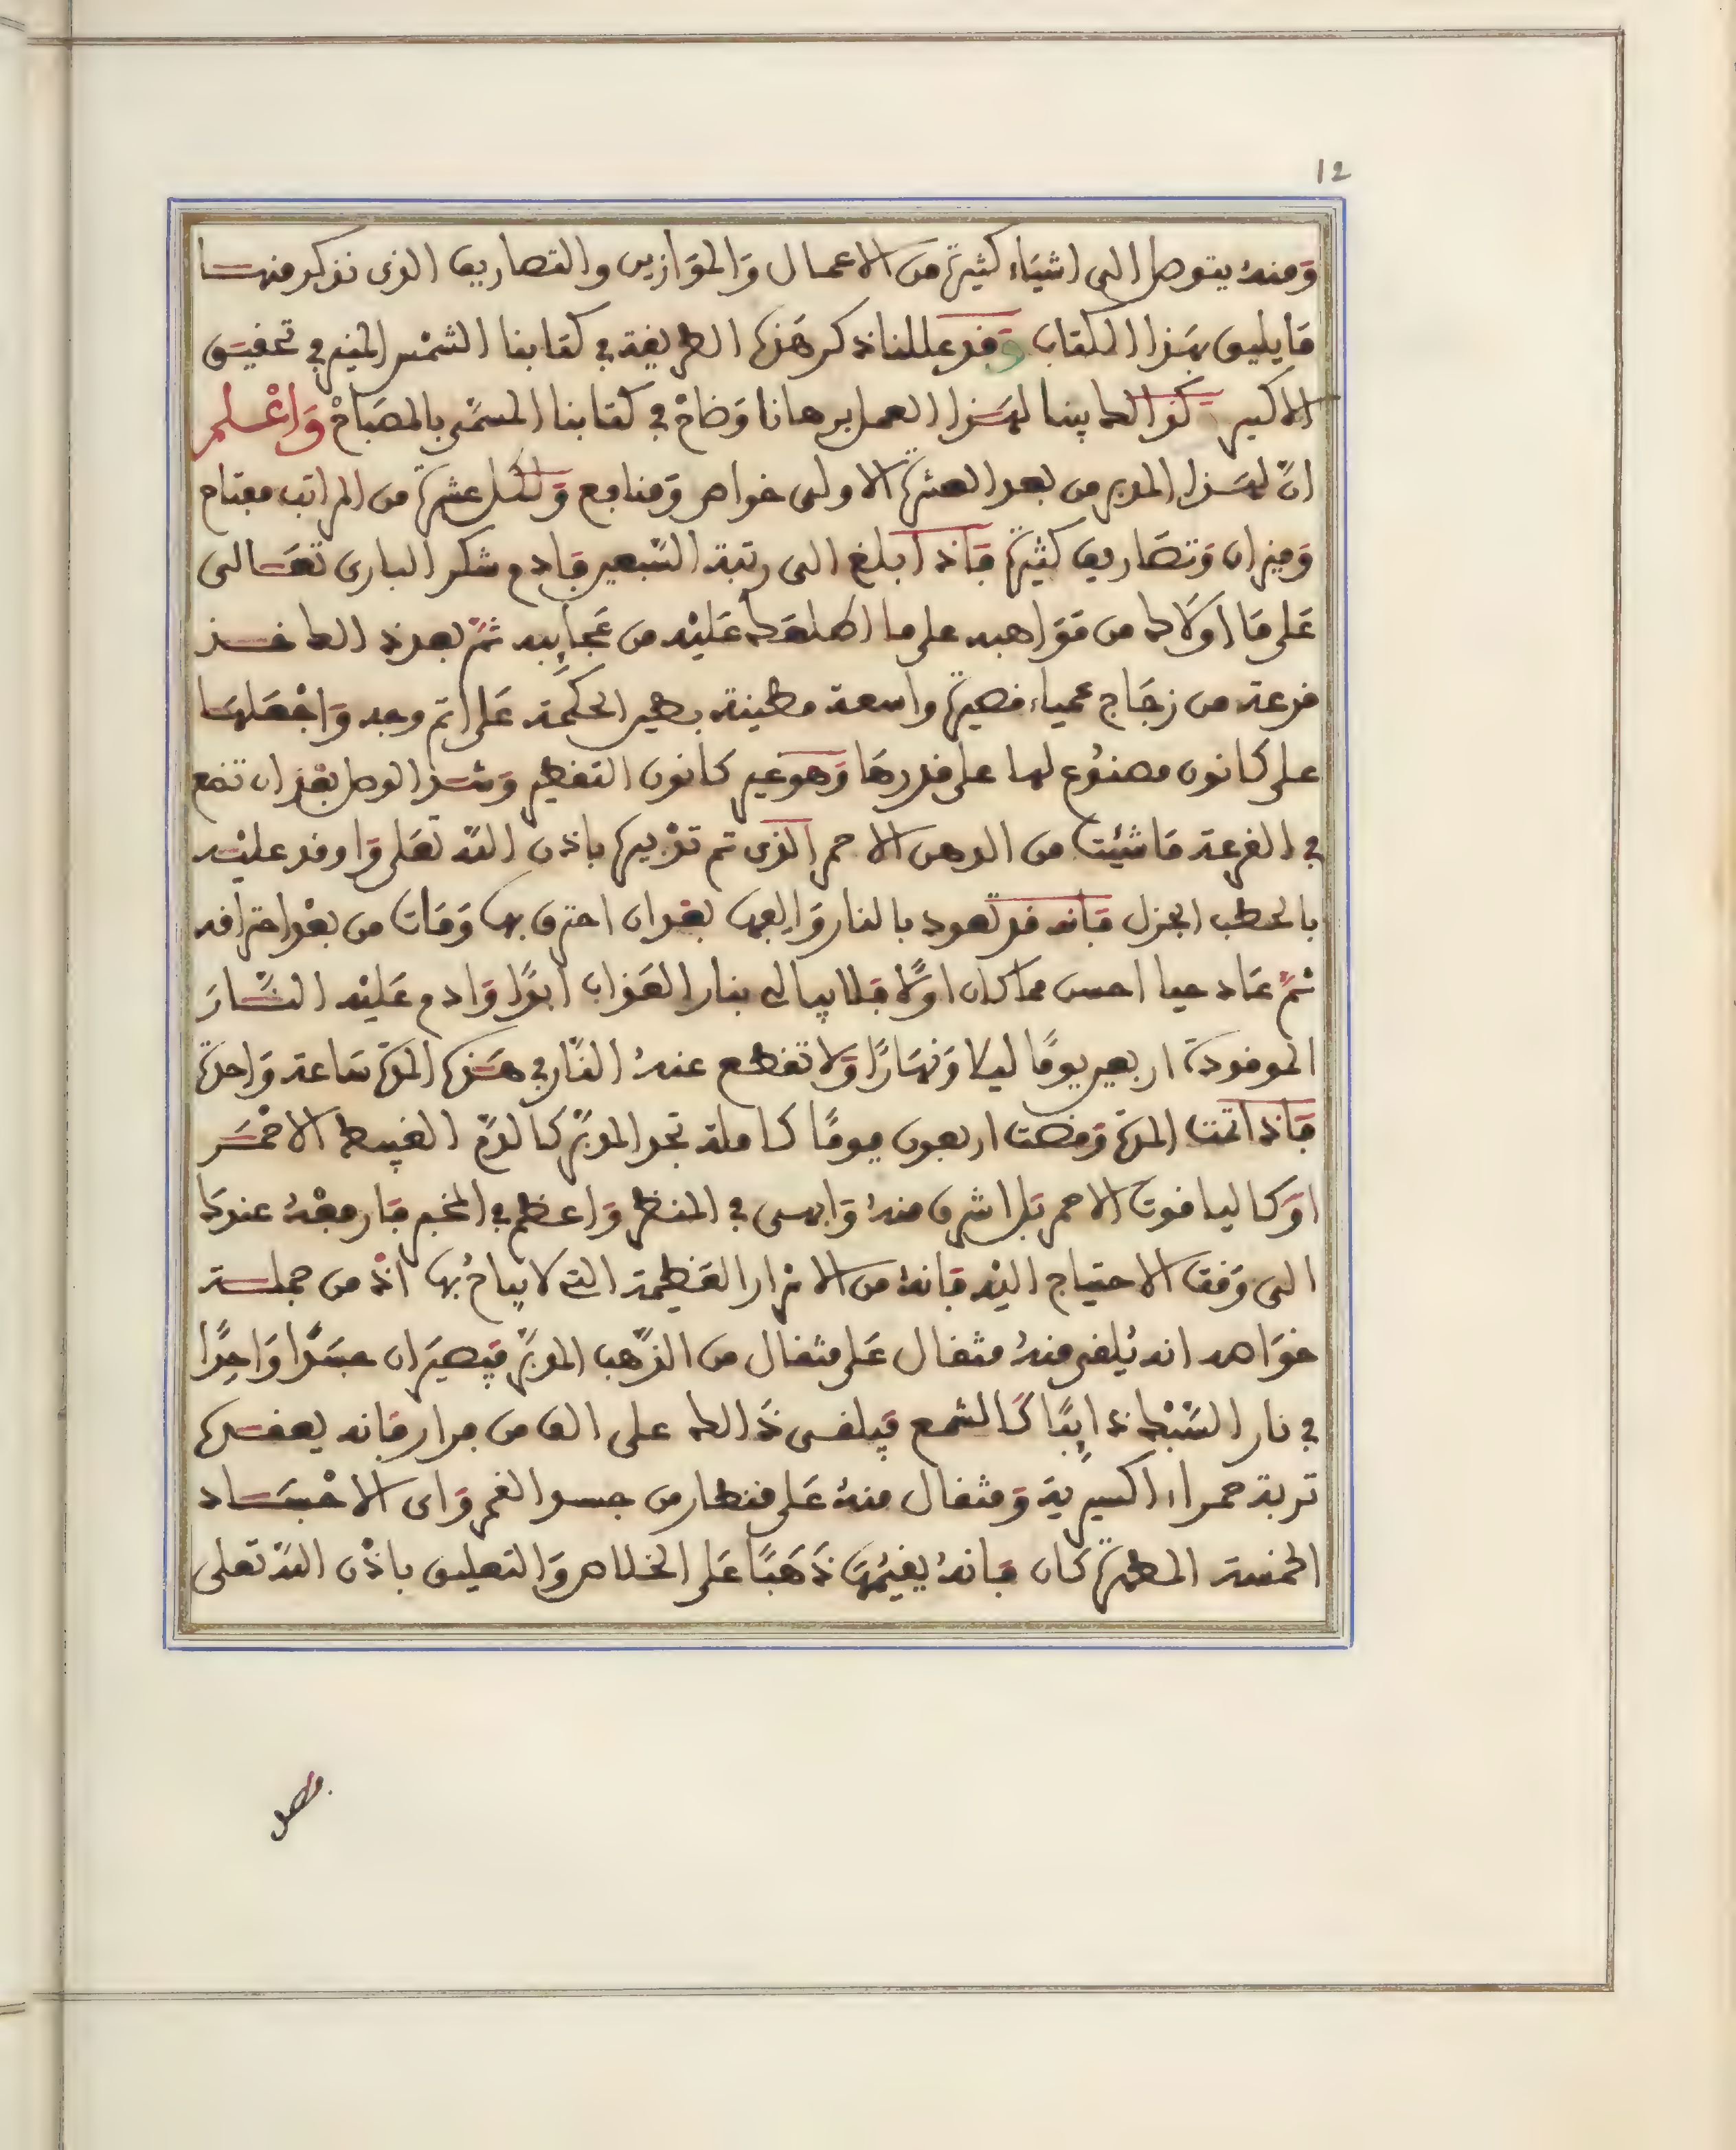 12
وَمنهُ يتوصل الى اشيَاء كثيرة من الاعمال وَالموَازين والتصاريف الذى نذكر منها
مَا يليق بهَذا الكتاب وَقد عللنا ذكر هَذه الطريقة في كتابنا الشمْس المنير في تحقيق
الاكسير كذالك بينا لهَذا العمل برهانا وَضاحْ في كتابنا المسمّى بالمصبَاحْ وَاعْلم
انّ لهَذا المدبر من بعد العشرة الاولى خواص وَمنافع وَلكل عشرة من المراتب مفتاح
وَميزان وَتصَاريف كثيرة فَاذا بلغ الى رتبة السّبعين فَادم شكر البارى تعَالى
عَلى مَا اوَلاك من مَوَاهبه على ما اطلعَك عَليْه من عَجايبه ثمّ بعد ذالك خذ
قرعة من زجَاج عمياء قصيرة واسعة مطينة بطين الحكمَة عَلى اتم وجه وَاجْعَلهَا
على كانون مصنُوع لها على قدرهَا وَهو غير كانون التقطير وَشد الوصل بعْد ان تضع
في القرعة مَا شئت من الدهن الاحمر الذى تم تدْبيره باذن اللّه تعَلى وَاوقد عليْه
بالحطب الجزل فَانه قد تعود بالنار وَالِفها بعْد ان احترق بها وَمَات من بعْد احترَاقه
ثمّ عَاد حيا احسن مما كان اوّلا فَلا يبالى بنار العَذاب ابدًا وَادم عَليْه النّارَ
الموقودة اربعين يومًا ليلا وَنهَارًا وَلا تقطع عنهُ النّار في هَذه المدّة سَاعة وَاحدَة
فَاذا تمت المدّة وَمضت اربعون يومًا كاملة تجد المدبّر كالدّم الغبيط الاحْمَر
اوَ كالياقوت الاحمر بَل اشرق منهُ وَابهى في المنظر وَاعظم في المخبر فَارفعْهُ عندكَ
الى وَقت الاحتياج اليْه فَانهُ من الاسْرار العَظيمة التى لا يباحُ بها اذْ من جملة
خوَاصه انه يُلقى منهُ مثقال عَلى مثقال من الذّهب المدبّر فيَصيرَان جسَدًا وَاحِدًا
في نار السّبْك ذايبًا كَالشمع فيَلقى ذَالك على الف من فرار فَانه يعقده
تربة حمراء اكسيرية وَمثقال منهُ عَلى قنطار من جسد القمر وَاى الاجْسَاد
الخمسة المطهرة كَان فَانهُ يقيمُه ذَهَبًا عَلى الخلاص وَالتعليق باذْن اللّه تعلى
فصل